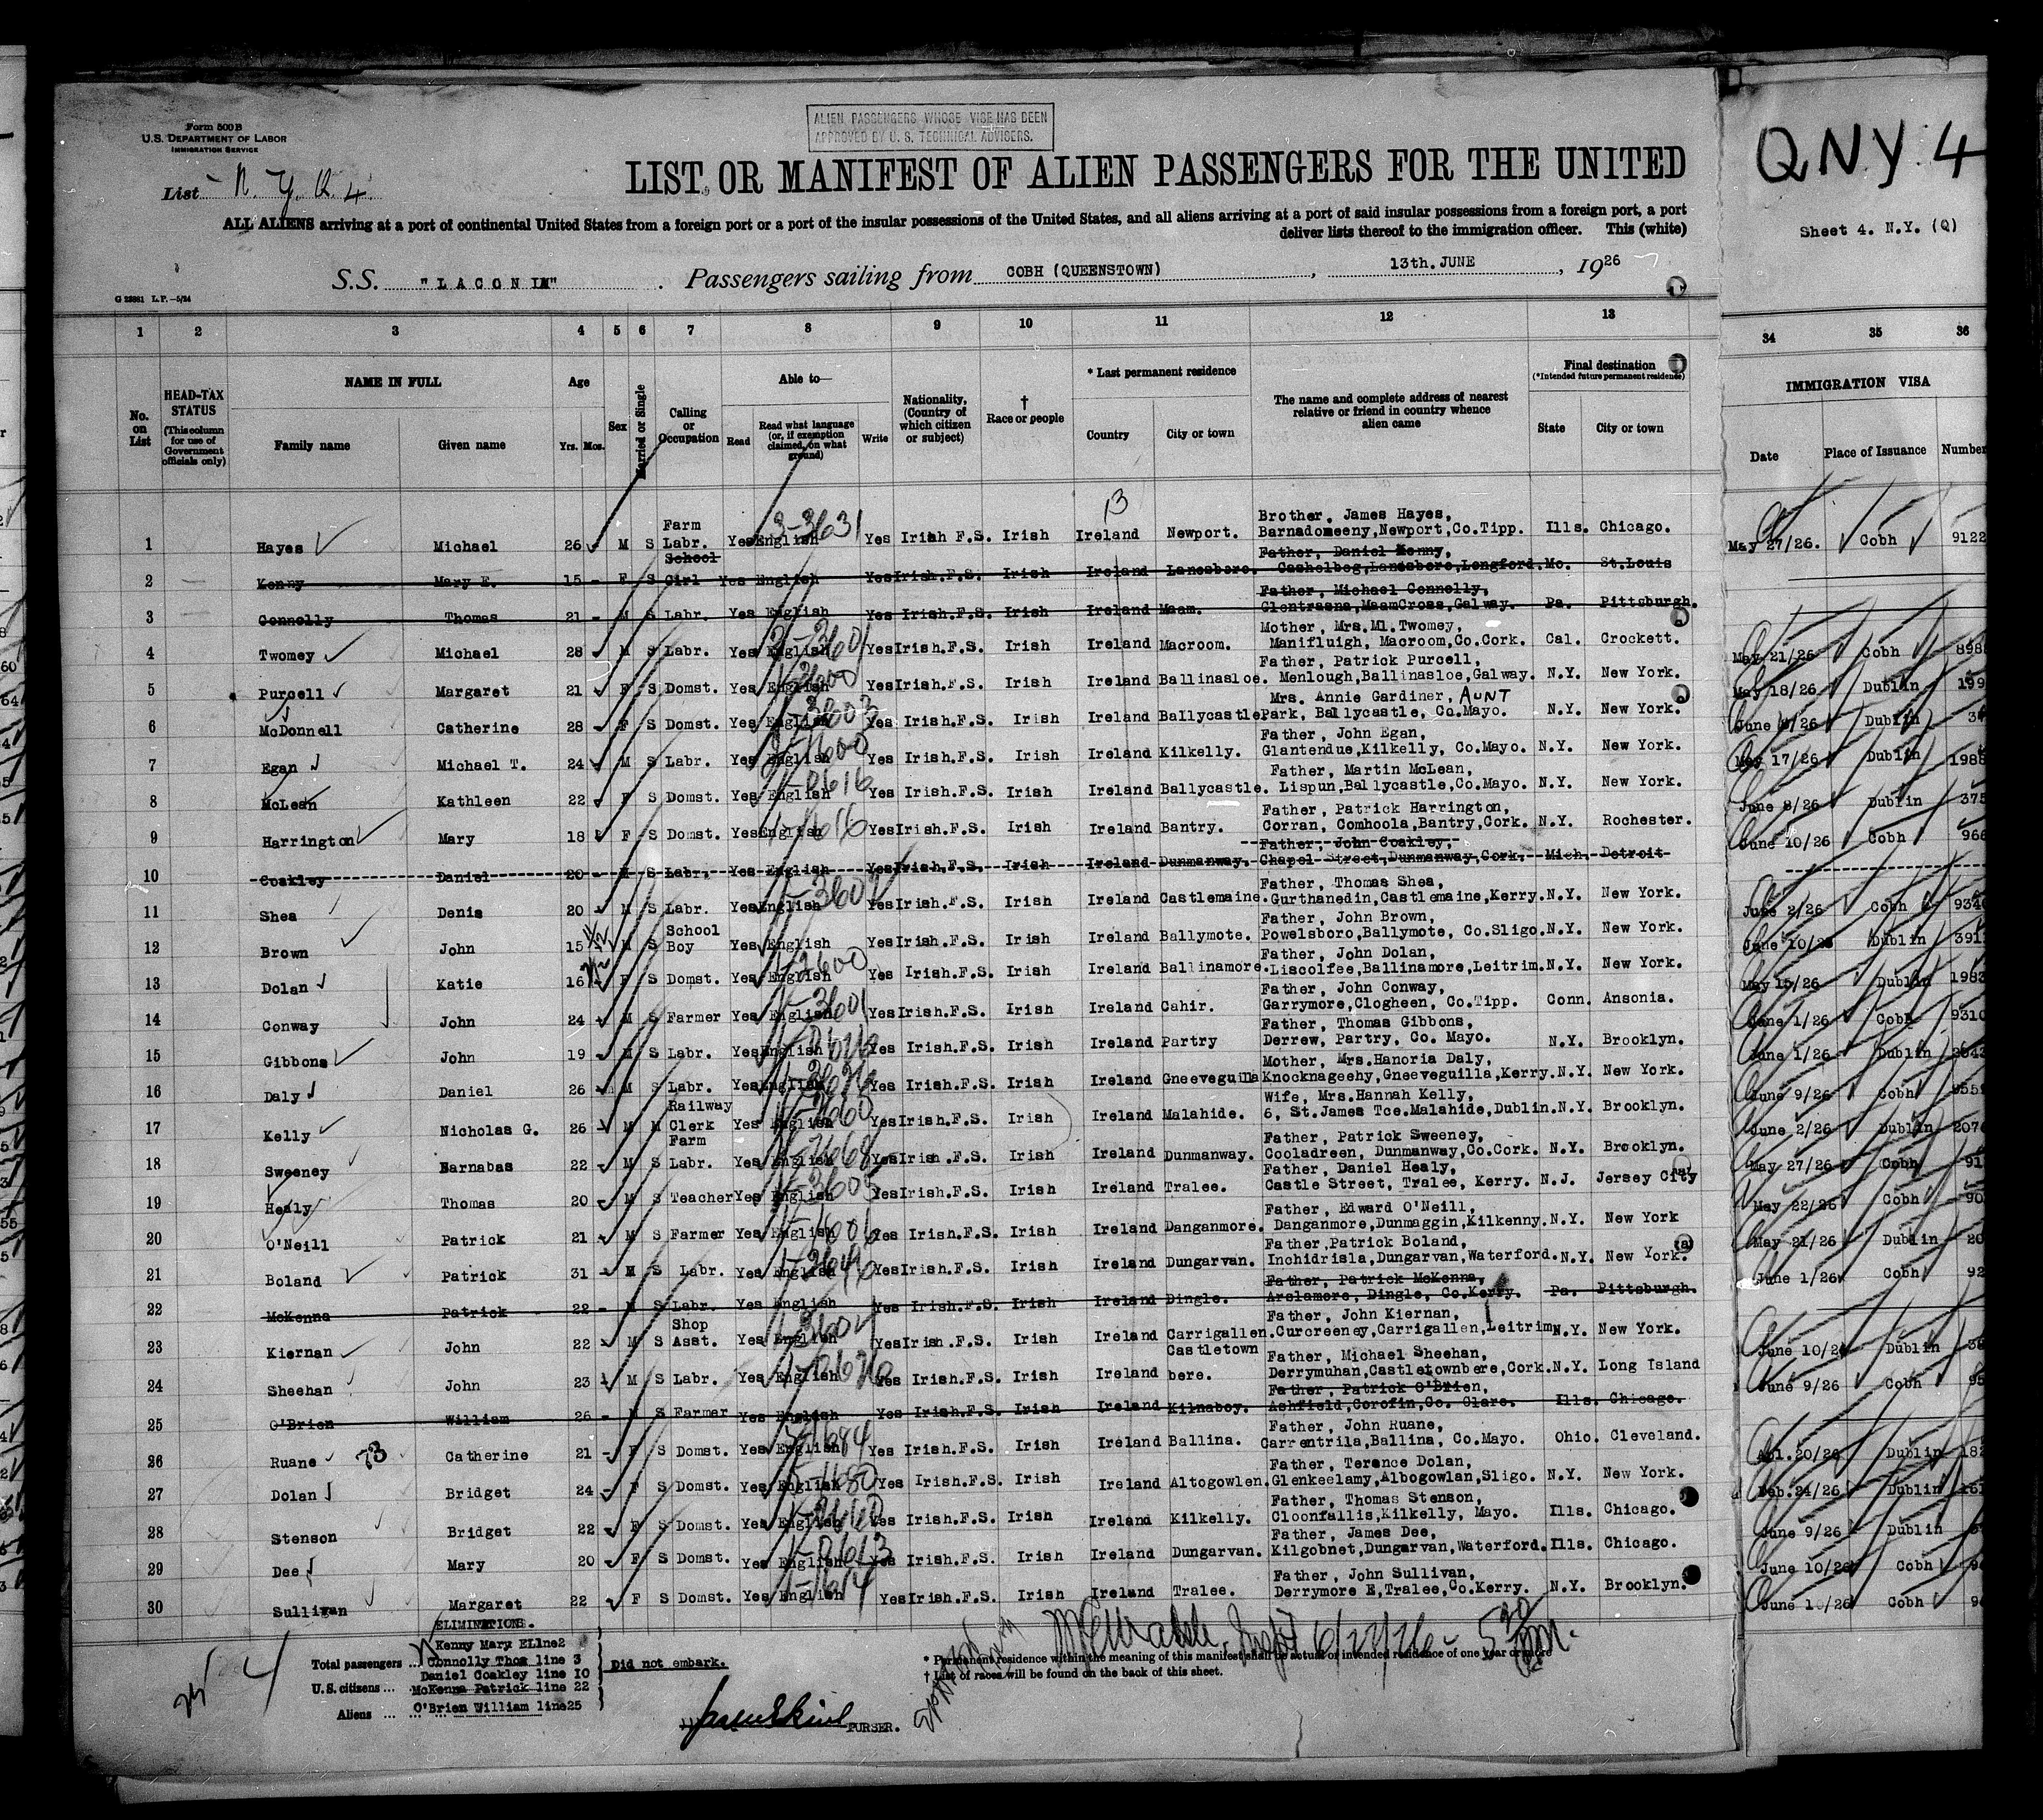 Form 500B
U.S. DEPARTMENT OF LABOR
IMMIGRATION SERVICE
ALIEN PASSENGERS WHOSE VISE HAS BEEN
APPROVED BY U. S. TECHNICAL ADVISERS.
List N. Y. Q. 4.
LIST OR MANIFEST OF ALIEN PASSENGERS FOR THE UNITED
ALL ALIENS arriving at a port of continental United States from a foreign port or a port of the insular possessions of the United States, and all aliens arriving at a port of said insular possessions from a foreign port, a port
deliver lists thereof to the immigration officer. This (white)
S.S. "LACONIA" . Passengers sailing from COBH (QUEENSTOWN) , 13th. JUNE , 1926
G 23861 L.P.—5/24
QNY 4
Sheet 4. N.Y. (Q)
1 2 3 4 5 6 7 8 9 10 11 12 13 34 35 36
No. on List
HEAD-TAX STATUS (This column for use of Government officials only)
NAME IN FULL
Family name Given name
Age Yrs. Mos.
Sex
Married or Single
Calling or Occupation
Able to—
Read Read what language (or, if exemption claimed, on what ground) Write
Nationality, (Country of which citizen or subject)
† Race or people
* Last permanent residence
Country City or town
The name and complete address of nearest relative or friend in country whence alien came
Final destination (*Intended future permanent residence)
State City or town
IMMIGRATION VISA
Date Place of Issuance Number
13
1 Hayes Michael 26 M S Farm Labr. Yes English 3-3631 Yes Irish F.S. Irish Ireland Newport. Brother, James Hayes, Barnadomeeny,Newport,Co.Tipp. Ills. Chicago. May 27/26. Cobh 9122
2 Kenny Mary E. 15 - F S School Girl Yes English Yes Irish.F.S. Irish Ireland Lanesboro. Father, Daniel Kenny, Cashelbeg,Lanesboro,Longford. Mo. St.Louis
3 Connolly Thomas 21 - M S Labr. Yes English Yes Irish.F.S. Irish Ireland Maam. Father, Michael Connolly, Glentrasna,MaamCross,Galway. Pa. Pittsburgh.
4 Twomey Michael 28 M S Labr. Yes English Yes Irish.F.S. Irish Ireland Macroom. Mother, Mrs.Ml.Twomey, Manifluigh, Macroom,Co.Cork. Cal. Crockett. May 21/26 Cobh 898
5 Purcell Margaret 21 F S Domst. Yes English Yes Irish.F.S. Irish Ireland Ballinasloe. Father, Patrick Purcell, Menlough,Ballinasloe,Galway. N.Y. New York. May 18/26 Dublin 199
6 McDonnell Catherine 28 F S Domst. Yes English Yes Irish.F.S. Irish Ireland Ballycastle. Mrs. Annie Gardiner, AUNT Park, Ballycastle, Co.Mayo. N.Y. New York. Dublin
7 Egan Michael T. 24 M S Labr. Yes English Yes Irish.F.S. Irish Ireland Kilkelly. Father, John Egan, Glantendue,Kilkelly, Co.Mayo. N.Y. New York. May 17/26 Dublin 1988
8 McLean Kathleen 22 F S Domst. Yes English Yes Irish.F.S. Irish Ireland Ballycastle. Father, Martin McLean, Lispun,Ballycastle,Co.Mayo. N.Y. New York. June 8/26 Dublin 375
9 Harrington Mary 18 F S Domst. Yes English Yes Irish.F.S. Irish Ireland Bantry. Father, Patrick Harrington, Corran, Comhoola,Bantry,Cork. N.Y. Rochester. June 10/26 Cobh 966
10 Coakley Daniel 20 - M S Labr. Yes English Yes Irish.F.S. Irish Ireland Dunmanway. Father, John Coakley, Chapel Street,Dunmanway,Cork. Mich. Detroit
11 Shea Denis 20 M S Labr. Yes English Yes Irish.F.S. Irish Ireland Castlemaine. Father, Thomas Shea, Gurthanedin,Castlemaine,Kerry. N.Y. New York. June 2/26 Cobh 934
12 Brown John 15 M S School Boy Yes English Yes Irish.F.S. Irish Ireland Ballymote. Father, John Brown, Powelsboro,Ballymote, Co.Sligo. N.Y. New York. June 10/26 Dublin 391
13 Dolan Katie 16 F S Domst. Yes English Yes Irish.F.S. Irish Ireland Ballinamore. Father, John Dolan, Liscolfee,Ballinamore,Leitrim. N.Y. New York. May 15/26 Dublin 1983
14 Conway John 24 M S Farmer Yes English Yes Irish.F.S. Irish Ireland Cahir. Father, John Conway, Garrymore,Clogheen, Co.Tipp. Conn. Ansonia. June 1/26 Cobh 9310
15 Gibbons John 19 M S Labr. Yes English Yes Irish.F.S. Irish Ireland Partry Father, Thomas Gibbons, Derrew, Partry, Co. Mayo. N.Y. Brooklyn. June 1/26 Dublin
16 Daly Daniel 26 M S Labr. Yes English Yes Irish.F.S. Irish Ireland Gneeveguilla Mother, Mrs.Hanoria Daly, Knocknageehy,Gneeveguilla,Kerry. N.Y. New York. June 9/26 Cobh
17 Kelly Nicholas G. 26 M M Railway Clerk Yes English Yes Irish.F.S. Irish Ireland Malahide. Wife, Mrs.Hannah Kelly, 6, St.James Tce.Malahide,Dublin. N.Y. Brooklyn. June 2/26 Dublin 207
18 Sweeney Barnabas 22 M S Farm Labr. Yes English Yes Irish.F.S. Irish Ireland Dunmanway. Father, Patrick Sweeney, Cooladreen, Dunmanway,Co.Cork. N.Y. Brooklyn. May 27/26 Cobh 91
19 Healy Thomas 20 M S Teacher Yes English Yes Irish.F.S. Irish Ireland Tralee. Father, Daniel Healy, Castle Street, Tralee, Kerry. N.J. Jersey City May 22/26 Cobh 90
20 O'Neill Patrick 21 M S Farmer Yes English Yes Irish.F.S. Irish Ireland Danganmore. Father, Edward O'Neill, Danganmore,Dunmaggin,Kilkenny. N.Y. New York May 21/26 Dublin 20
21 Boland Patrick 31 M S Labr. Yes English Yes Irish.F.S. Irish Ireland Dungarvan. Father,Patrick Boland, Inchidrisla,Dungarvan,Waterford. N.Y. New York. June 1/26 Cobh 92
22 McKenna Patrick 22 - M S Labr. Yes English Yes Irish.F.S. Irish Ireland Dingle. Father, Patrick McKenna, Arclamore, Dingle, Co.Kerry. Pa. Pittsburgh.
23 Kiernan John 22 M S Shop Asst. Yes English Yes Irish.F.S. Irish Ireland Carrigallen. Father, John Kiernan, Curcreeney,Carrigallen,Leitrim N.Y. New York. June 10/26 Dublin 38
24 Sheehan John 23 M S Labr. Yes English Yes Irish.F.S. Irish Ireland Castletown bere. Father, Michael Sheehan, Derrymuhan,Castletownbere,Cork. N.Y. Long Island June 9/26 Cobh 95
25 O'Brien William 26 - M S Farmer Yes English Yes Irish.F.S. Irish Ireland Kilnaboy. Father, Patrick O'Brien, Ashfield,Corofin,Co. Clare. Ills. Chicago.
26 Ruane 73 Catherine 21 - F S Domst. Yes English Yes Irish.F.S. Irish Ireland Ballina. Father, John Ruane, Carrentrila,Ballina, Co.Mayo. Ohio. Cleveland. Apl.20/26 Dublin 182
27 Dolan Bridget 24 - F S Domst. Yes English Yes Irish.F.S. Irish Ireland Altogowlen. Father, Terence Dolan, Glenkeelamy,Albogowlan,Sligo. N.Y. New York. Feb.24/26 Dublin
28 Stenson Bridget 22 F S Domst. Yes English Yes Irish.F.S. Irish Ireland Kilkelly. Father, Thomas Stenson, Cloonfallis,Kilkelly, Mayo. Ills. Chicago. June 9/26 Dublin
29 Dee Mary 20 F S Domst. Yes English Yes Irish.F.S. Irish Ireland Dungarvan. Father, James Dee, Kilgobnet,Dungarvan,Waterford. Ills. Chicago. June 10/26 Cobh
30 Sullivan Margaret 22 F S Domst. Yes English Yes Irish.F.S. Irish Ireland Tralee. Father, John Sullivan, Derrymore E,Tralee,Co.Kerry. N.Y. Brooklyn. June 10/26 Cobh
ELIMINATIONS.
Kenny Mary E Line2
Total passengers ... Connolly Thos line 3
Daniel Coakley line 10
U.S. citizens ... McKenna Patrick line 22
Aliens ... O'Brien William line25
Did not embark.
25 4
PURSER.
* Permanent residence within the meaning of this manifest shall be actual or intended residence of one year or more
† List of races will be found on the back of this sheet.